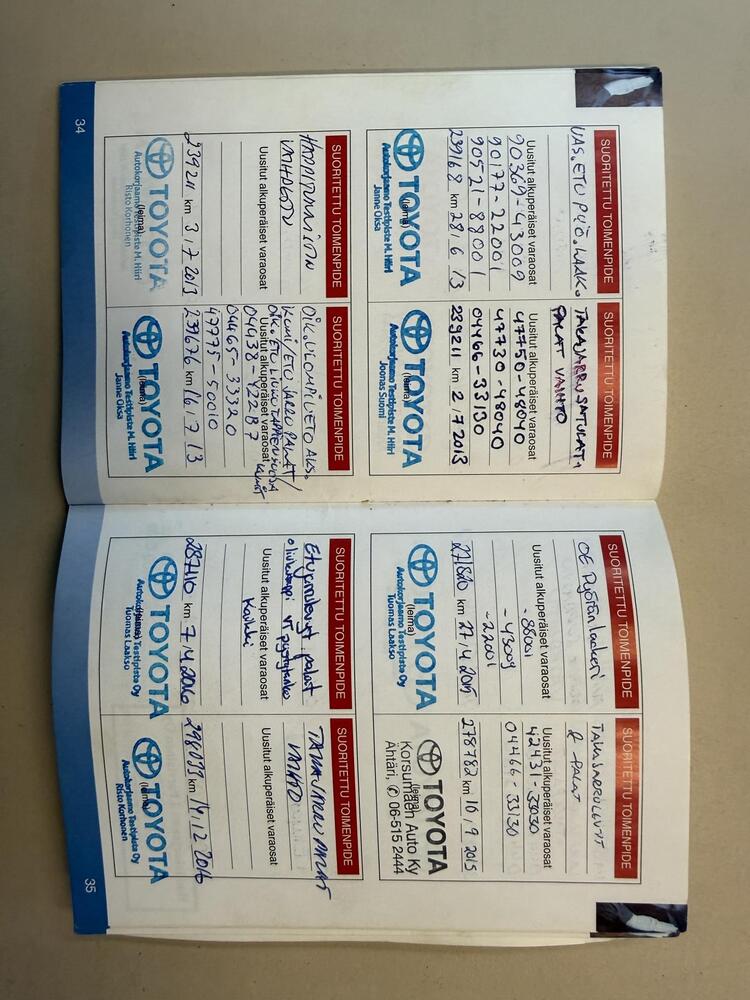 34
SUORITETTU TOIMENPIDE
VAS. ETU PYÖ. LAAK.
Uusitut alkuperäiset varaosat
90369-43009
90177-22001
90521-88001
239168 km 28/6/13
(leima)
TOYOTA
Autokorjaamo Testipiste M. Hiiri
Janne Oksa
SUORITETTU TOIMENPIDE
TAKAJARRUSATULAT,
PALAT VAIHTO
Uusitut alkuperäiset varaosat
47750-48040
47730-48040
04466-33130
239211 km 2/7 2013
(leima)
TOYOTA
Autokorjaamo Testipiste M. Hiiri
Joonas Suomi
SUORITETTU TOIMENPIDE
VAIHDETTU
Uusitut alkuperäiset varaosat
239211 km 3/7 2013
(leima)
TOYOTA
Autokorjaamo Testipiste M. Hiiri
Risto Korhonen
SUORITETTU TOIMENPIDE
OIK. ULOMPI VETO AKS.
KUMI/ETU JARRU PALAT/
OIK. ETU
Uusitut alkuperäiset varaosat
04438-422B7
04465-33320
47775-50010
239676 km 16/7/13
(leima)
TOYOTA
Autokorjaamo Testipiste M. Hiiri
Janne Oksa
SUORITETTU TOIMENPIDE
OE Pyörän laakeri
Uusitut alkuperäiset varaosat
-88001
-43009
-22001
271820 km 27/4 2015
(leima)
TOYOTA
Autokorjaamo Testipiste Oy
Tuomas Laakso
SUORITETTU TOIMENPIDE
TAKAJARRULEVYT
& PALAT
Uusitut alkuperäiset varaosat
42431-33130
04466-33130
278782 km 10/9 2015
(leima)
TOYOTA
Korsumäen Auto Ky
Ähtäri, ✆ 06-515 2444
SUORITETTU TOIMENPIDE
Etujarrulevyt, palat
Uusitut alkuperäiset varaosat
287110 km 7/4 2016
(leima)
TOYOTA
Autokorjaamo Testipiste Oy
Tuomas Laakso
SUORITETTU TOIMENPIDE
TAKAJARRU PALAT
VAIHTO
Uusitut alkuperäiset varaosat
km 14/12 2016
(leima)
TOYOTA
Autokorjaamo Testipiste Oy
Risto Korhonen
35